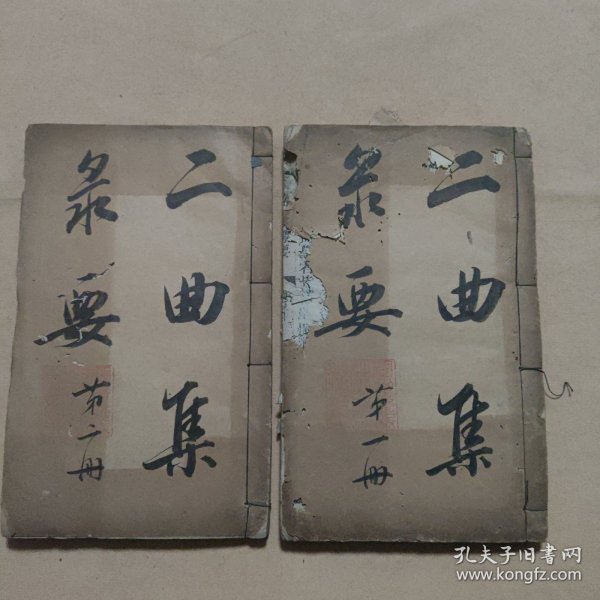 二曲集
彔要
第一册
二曲集
彔要
第二册
孔夫子旧书网
www.kongfz.com